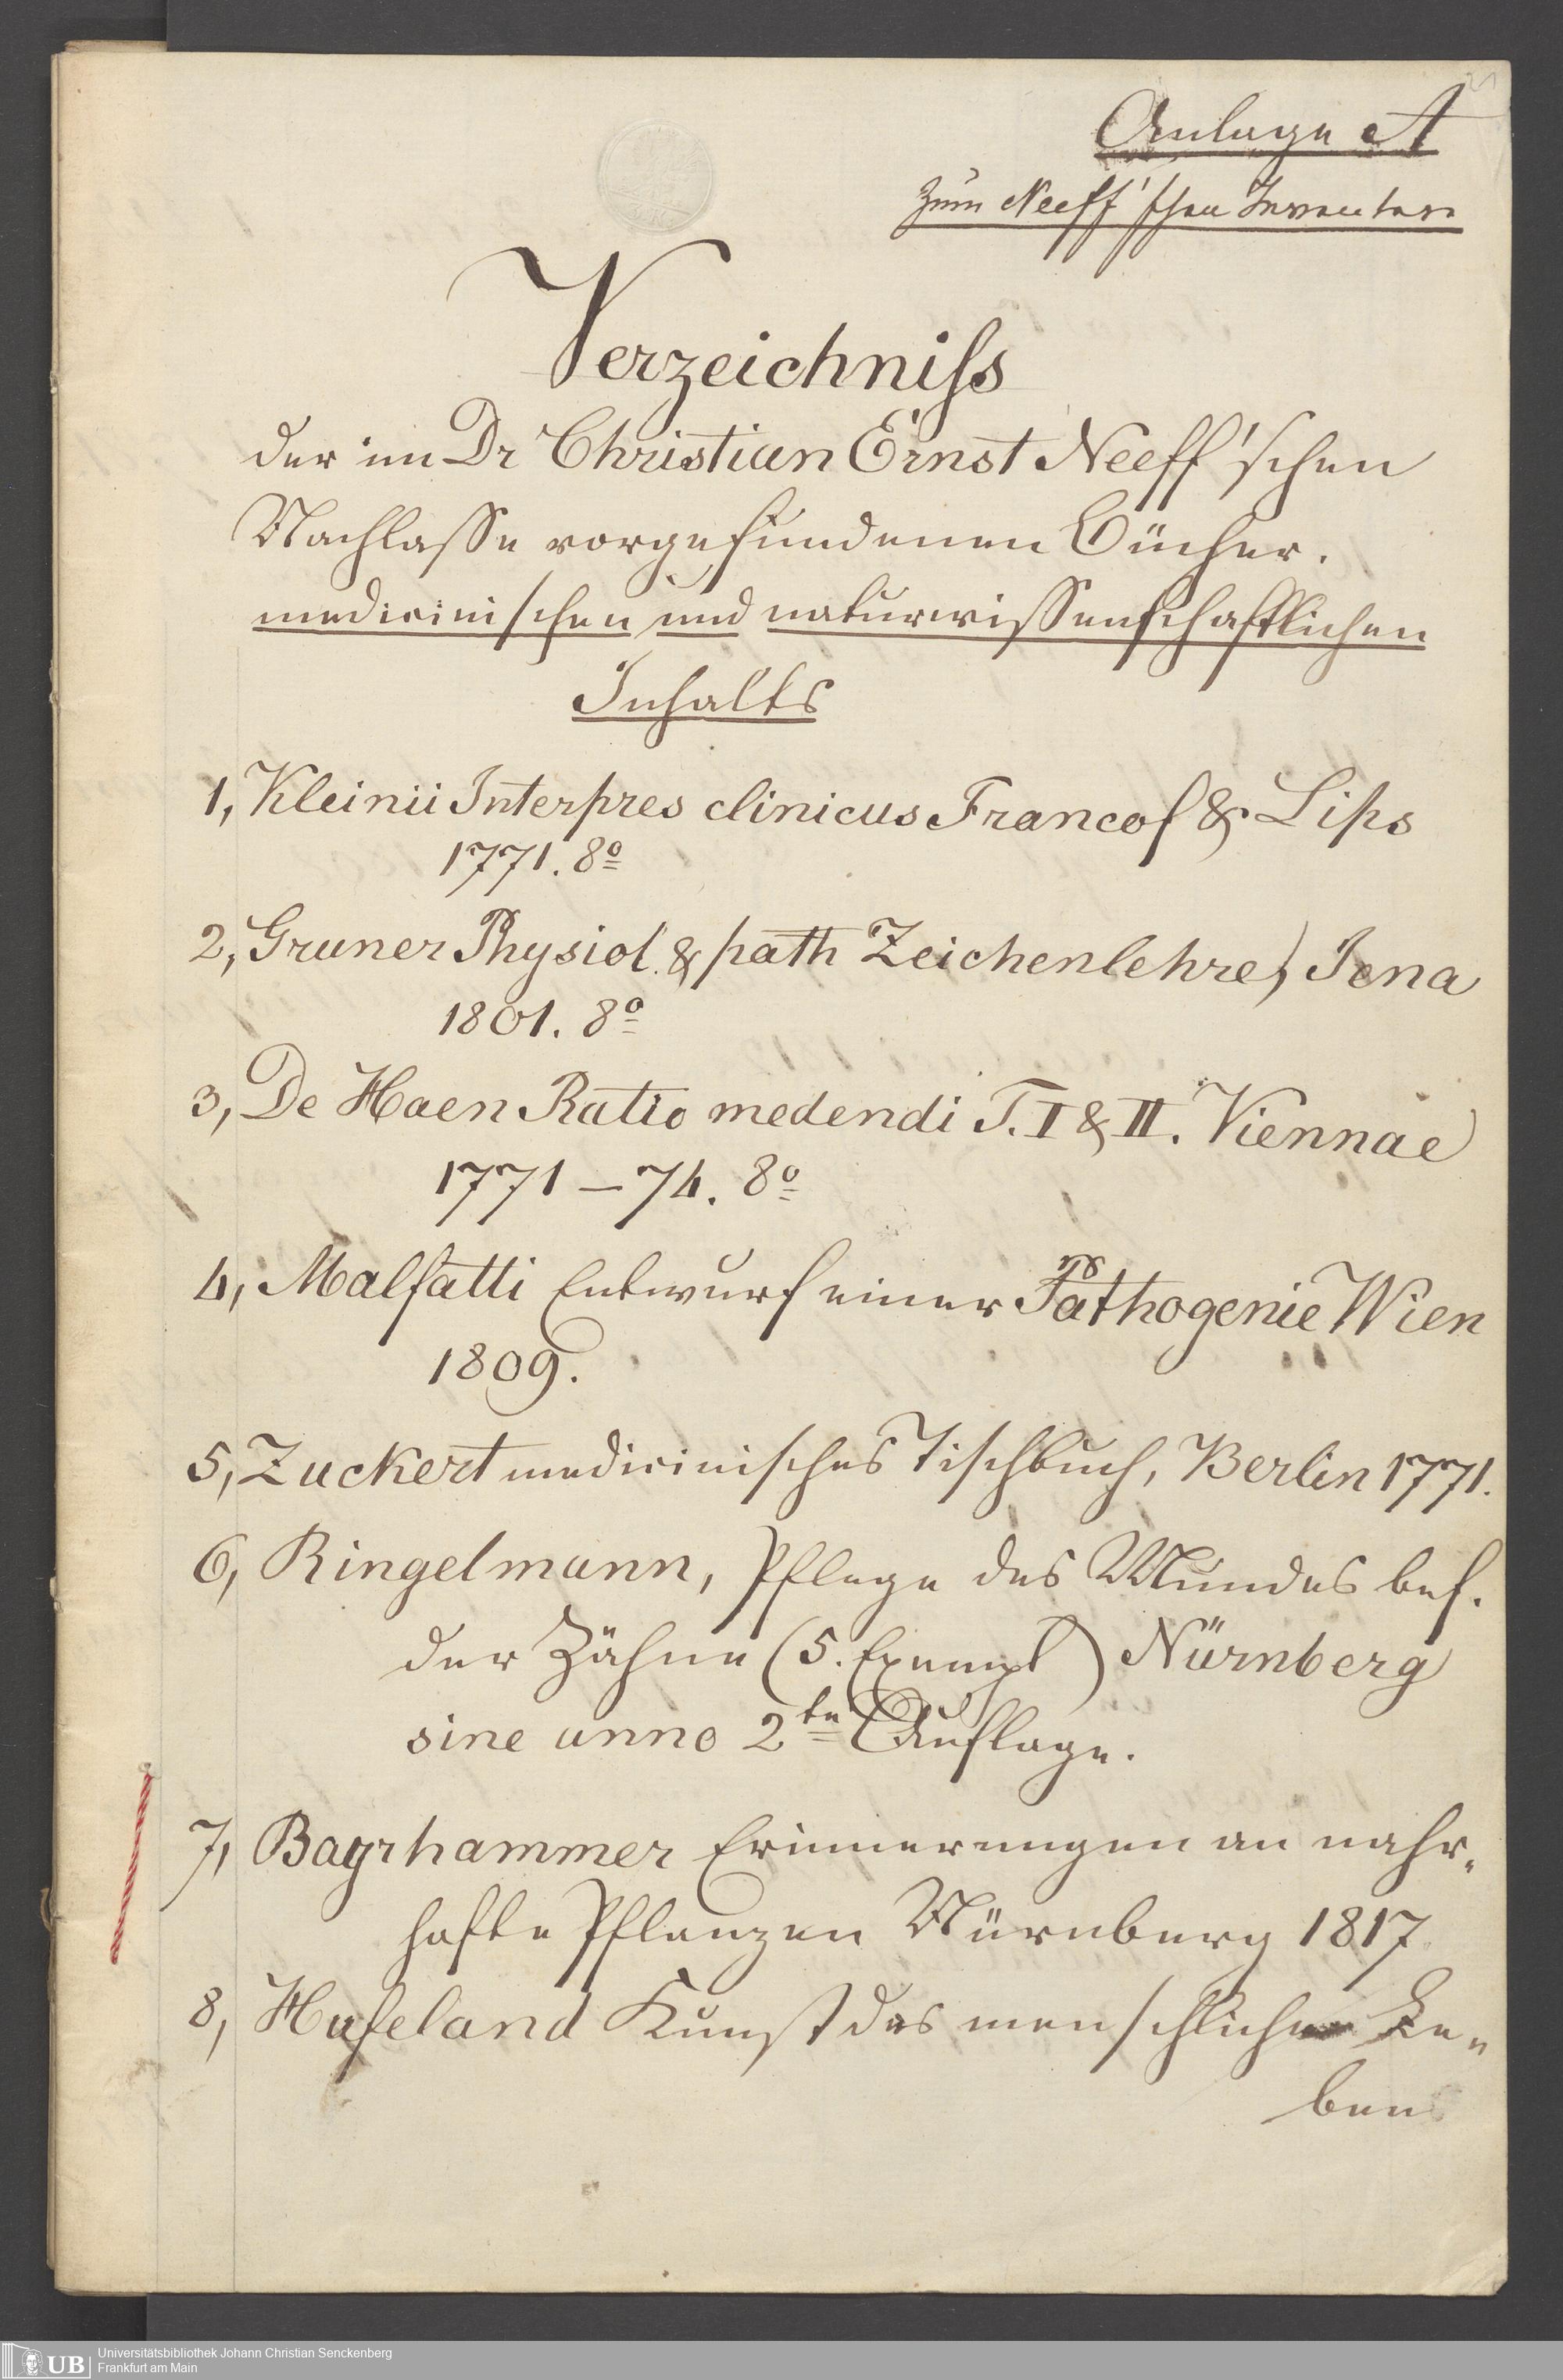 Anlage A
zum Neeff'schen Inventare
Verzeichniſs
der im Dr Christian Ernst Neeff'schen
Nachlasse vorgefundenen Bücher.
medicinischen und naturwissenschaftlichen
Inhalts
1, Kleinii Interpres clinicus Francof & Lips
1771. 8º
2, Gruner Physiol. & path Zeichenlehre, Jena
1801. 8º
3, De Haen Ratio medendi T. I & II. Viennae
1771 – 74. 8º
4, Malfatti Entwurf einer Pathogenie Wien
1809.
5, Zuckert medicinisches Tischbuch, Berlin 1771.
6, Ringelmann, Pflege des Mundes bes.
der Zähne (5. Exempl) Nürnberg
sine anno 2te Auflage.
7, Bayrhammer Erinnerungen an nahr-
hafte Pflanzen Nürnberg 1817
8, Hufeland Kunst das menschliche Le-
ben
Universitätsbibliothek Johann Christian Senckenberg
Frankfurt am Main
UB